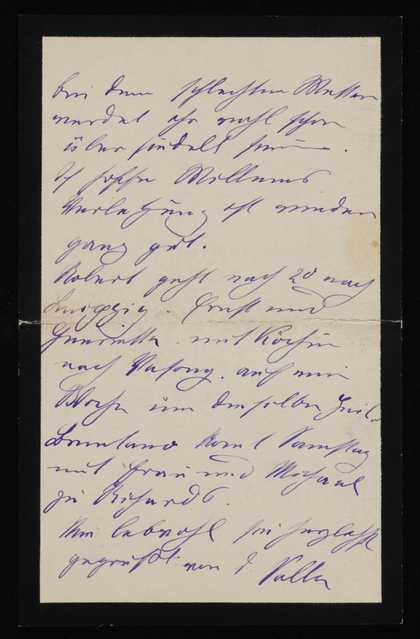 bei dem schlechten Wetter
werdet ihr wohl schon
über siedelt sein.
Ich hoffe Willems
Verletzung ist wieder
ganz gut.
Robert geht nach 20 nach
Leipzig. Ernst und
Henriette mit Köchin
nach auf eine
Woche um dieselbe Zeit,
Brentano komt Samstag
mit Frau und Michael
zu Richards.
Nun lebwohl sei herzlichst
gegrüßt von d